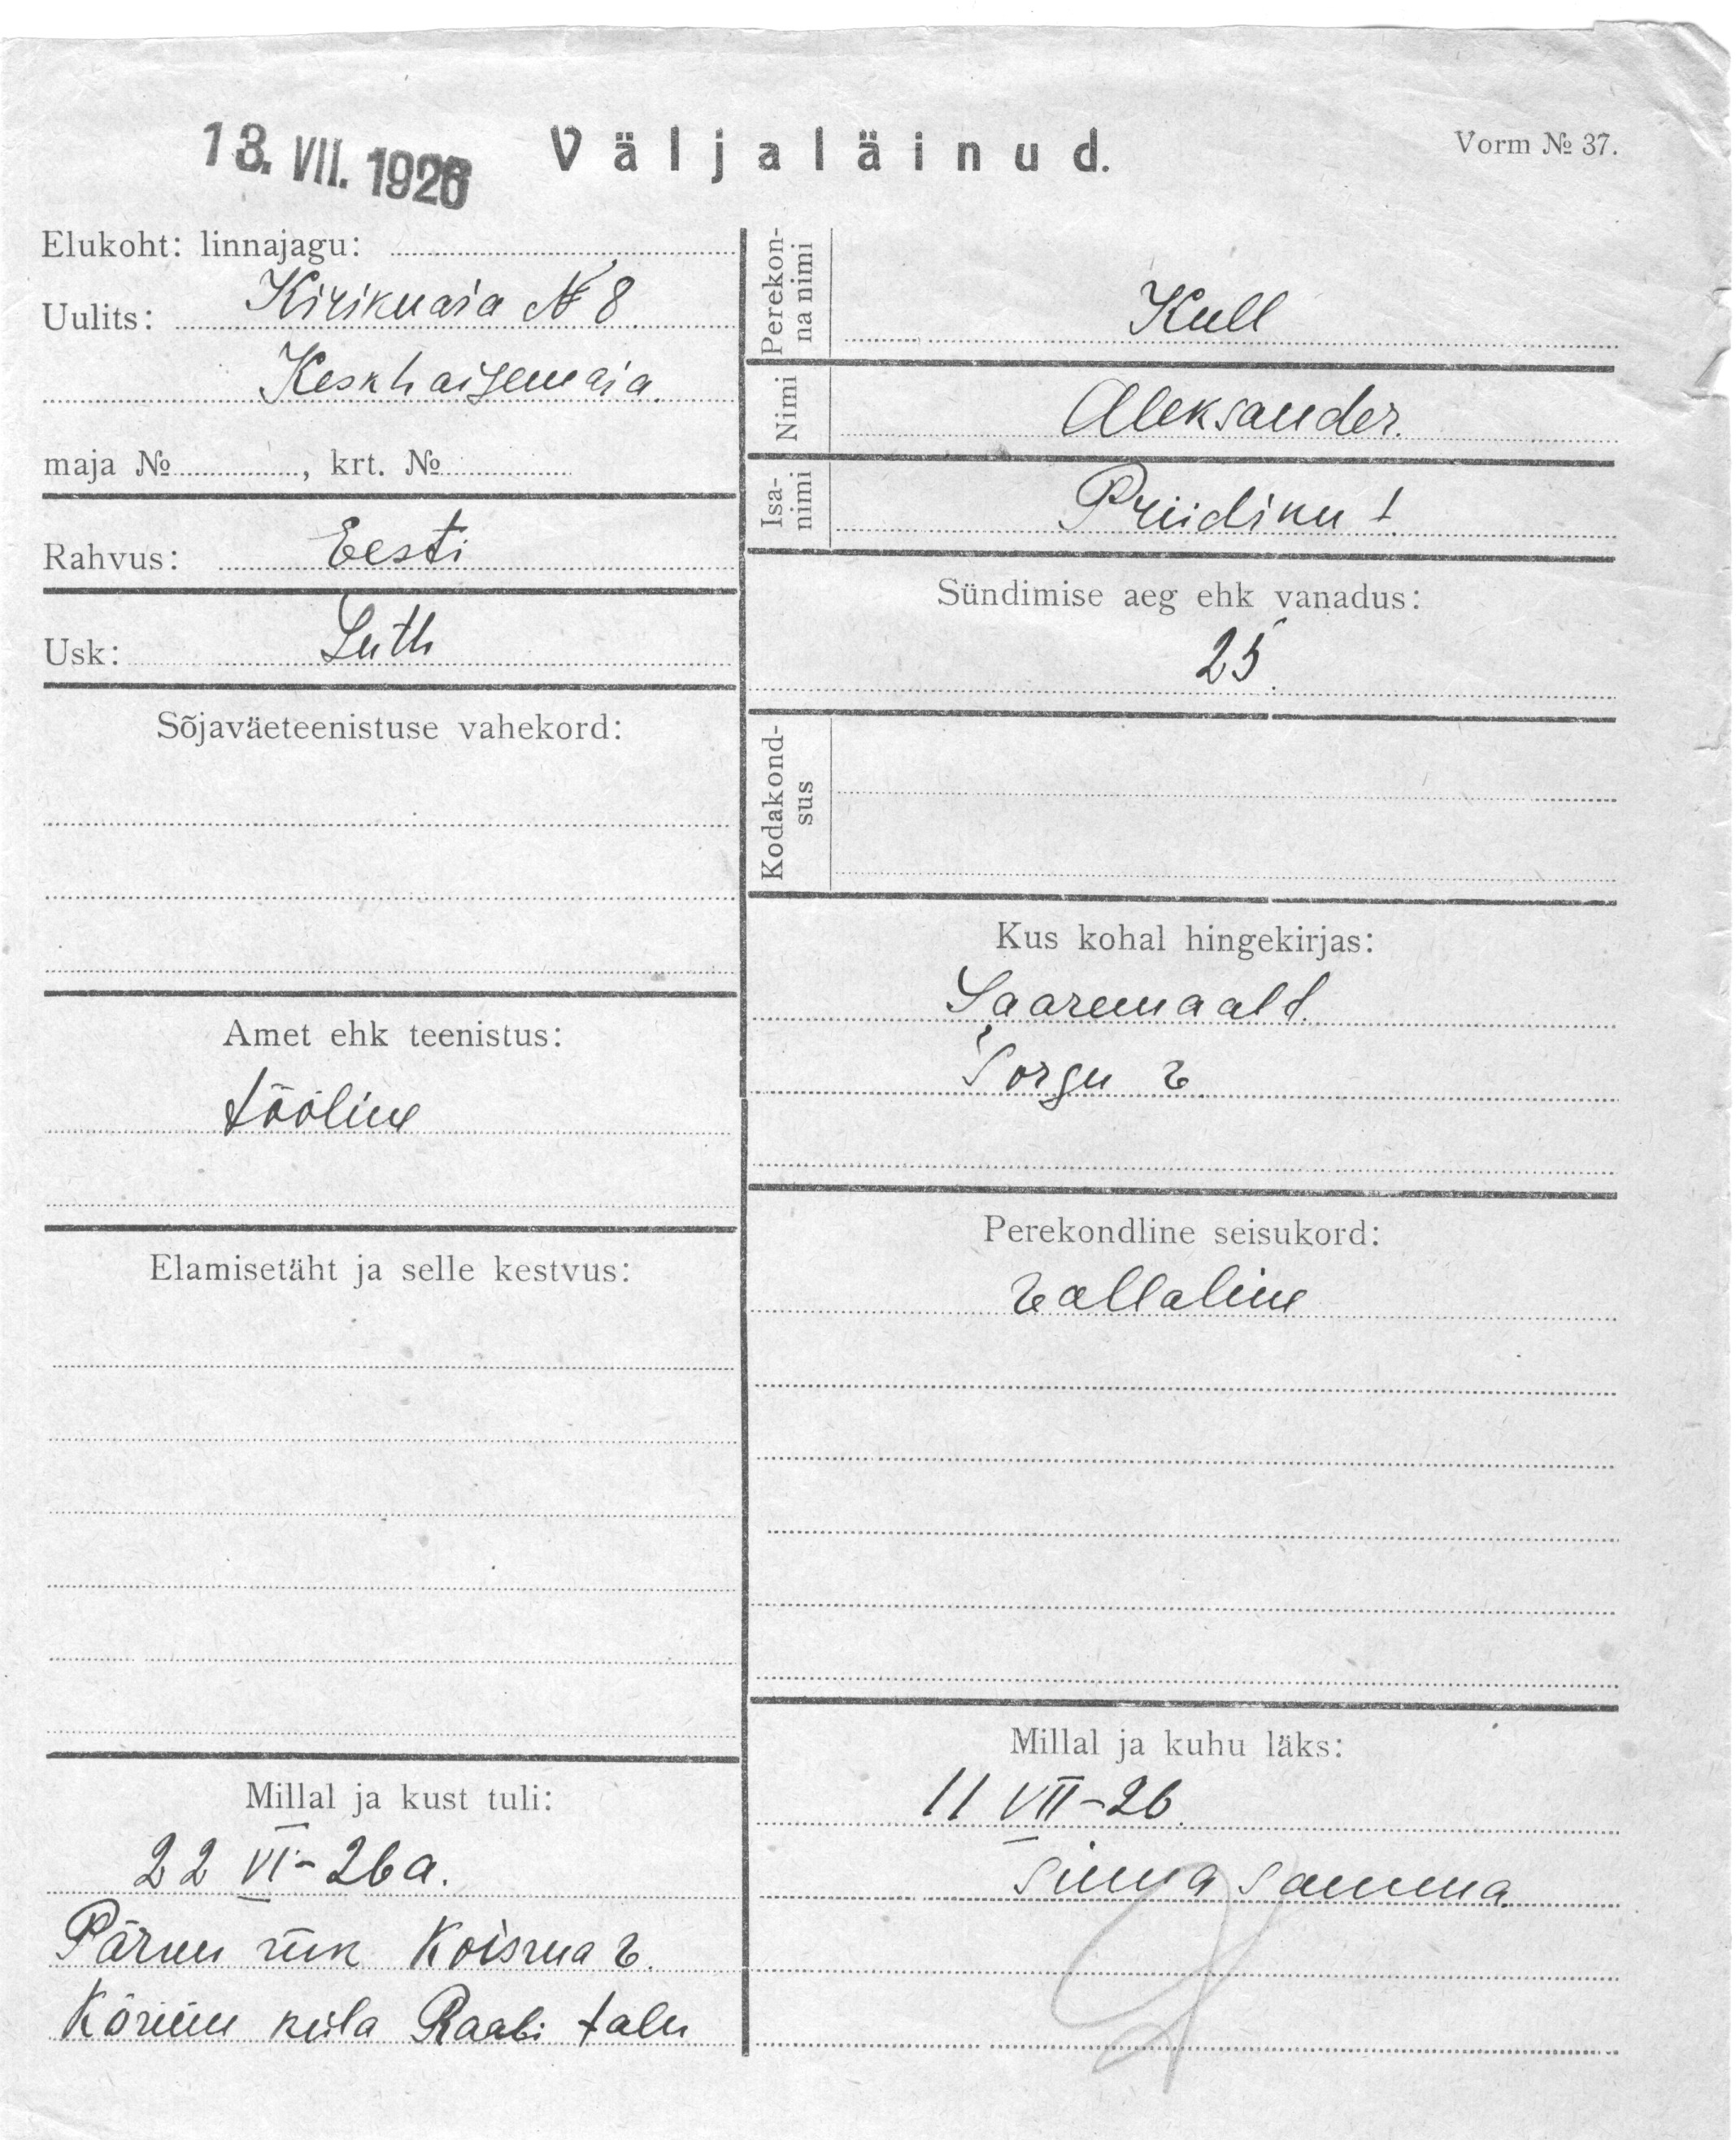 13. VII. 1926
Väljaläinud.
Vorm № 37.
Elukoht: linnajagu:
Uulits: Kirikuaia № 8
Keskhaigemaia.
maja №, krt. №
Rahvus: Eesti
Usk: Luth
Sõjaväeteenistuse vahekord:
Amet ehk teenistus:
tööline
Elamisetäht ja selle kestvus:
Millal ja kust tuli:
22 VI-26 a.
Pärnu mk Koisma v.
küla Raabi talu
Perekon-
na nimi
Kull
Nimi
Aleksander.
Isa-
nimi
Priidiku t.
Sündimise aeg ehk vanadus:
25.
Kodakond-
sus
Kus kohal hingekirjas:
Saaremaalt.
Torgu v.
Perekondline seisukord:
vallaline
Millal ja kuhu läks:
11 VII-26.
sinna samma.